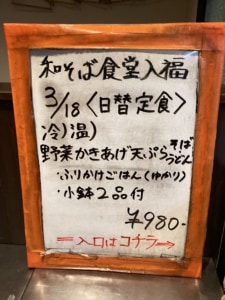 和そば食堂入福
3/18〈日替定食〉
冷)温)
野菜かきあげ天ぷらそばうどん
・ふりかけごはん(ゆかり)
・小鉢2品付
¥980-
⇐入口はコチラ⇒